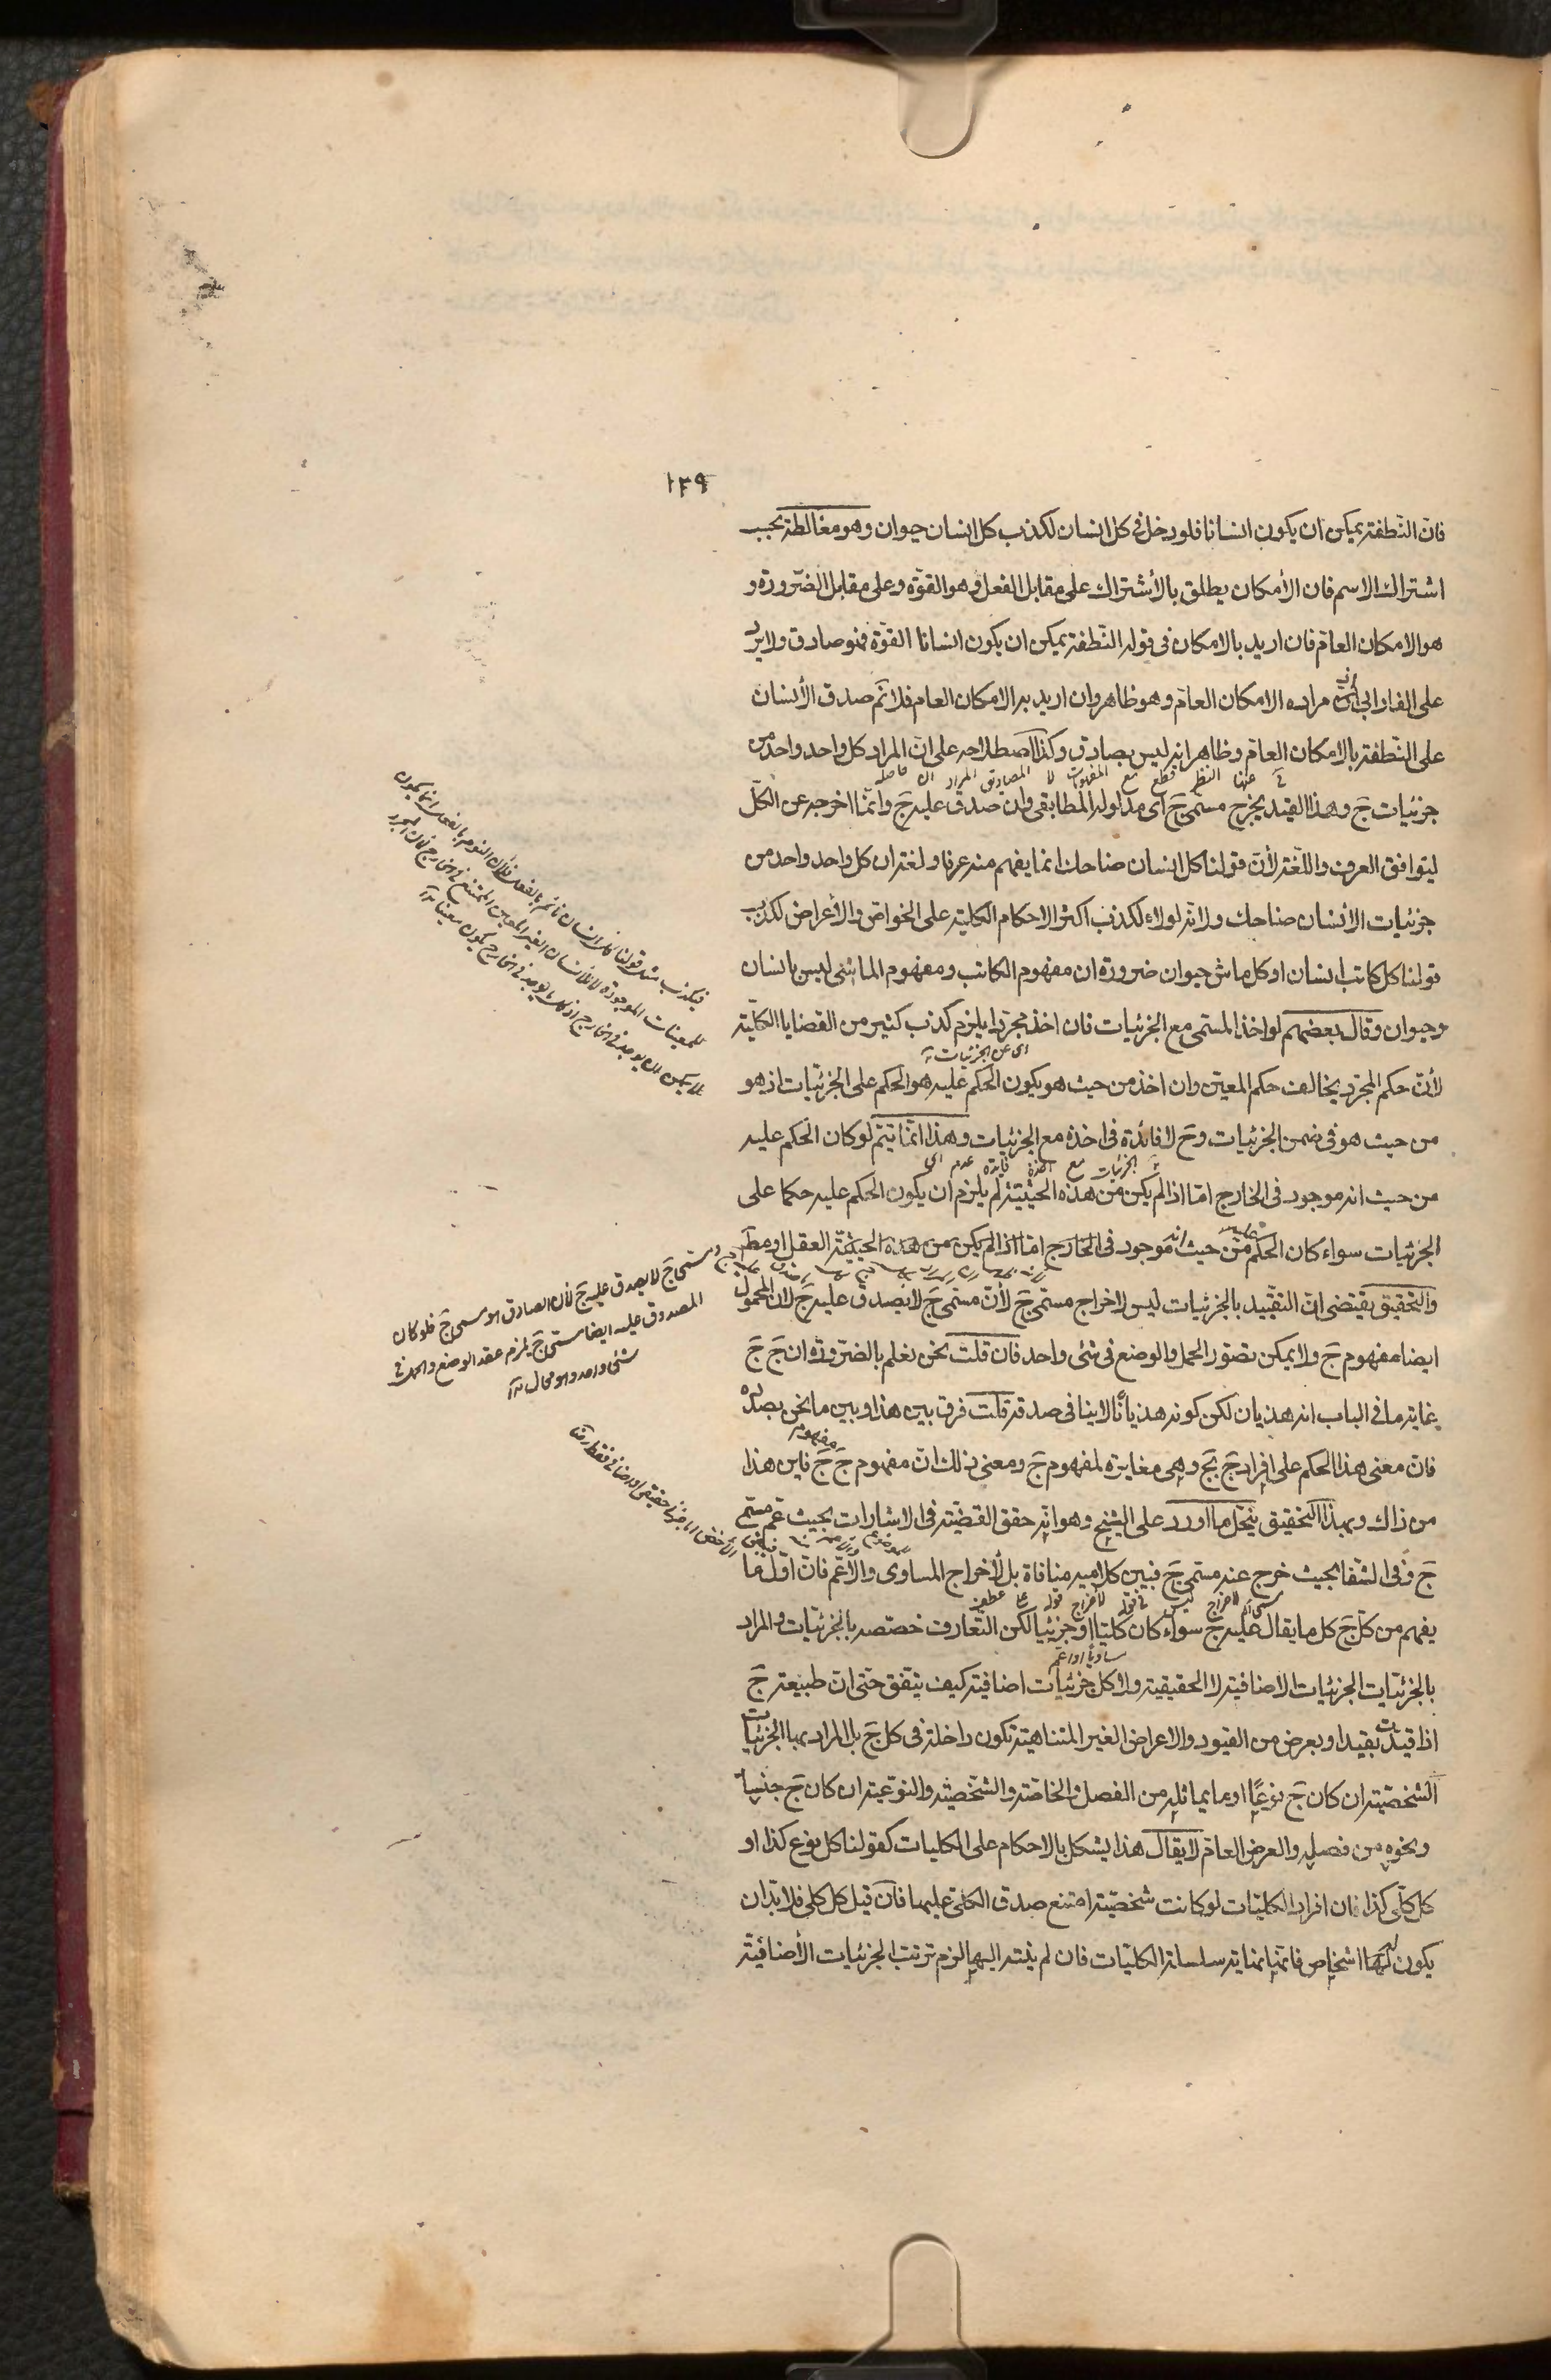 ١٣٩
فانّ النّطفة يمكن ان يكون انسانا فلو دخل فى كل انسان لكذب كل انسان حيوان وهو مغالطة بحسب
اشتراك الاسم فان الأمكان يطلق بالأشتراك على مقابل الفعل وهو القوّة وعلى مقابل الضّرورة و
هو الامكان العامّ فان اريد بالامكان فى قوله النّطفة يمكن ان يكون انسانا القوّة فهو صادق ولا يرد
على الفارابى لأنّ مراده الامكان العامّ وهو ظاهر وان اريد به الامكان العام فلا نمّ صدق الأنسان
على النّطفة بالامكان العامّ وظاهر انه ليس بصادق وكذا اصطلاحه على انّ المراد كل واحد واحد من
جزئيات جَ وهذا القيد يخرج مسمّى جَ اى مدلوله المطابقى وان صدق عليه جَ وانّما اخرجه عن الكلّ
ليتوافق العرف واللّغة لأنّ قولنا كل انسان ضاحك انما يفهم منه عرفا ولغة ان كل واحد واحد من
جزئيات الأنسان ضاحك ولانّه لولاه لكذب اكثر الاحكام الكلية على الخواصّ والأعراض لكذب
قولنا كل كاتب انسان او كل ماش حيوان ضرورة ان مفهوم الكاتب ومفهوم الماشى ليس بانسان
وحيوان وقال بعضهم لو اخذ المسمى مع الجزئيات فان اخذ مجرّدا يلزم كذب كثير من القضايا الكليّة
اى عن الجزئيات
لأنّ حكم المجرّد يخالف حكم المعيّن وان اخذ من حيث هو يكون الحكم عليه هو الحكم على الجزئيّات اذ هو
من حيث هو فى ضمن الجزئيات وحَ لا فائدة فى اخذه مع الجزئيات وهذا انّما يتمّ لو كان الحكم عليه
اى عدم فايدة اخذه مع الجزئيات
من حيث انه موجود فى الخارج امّا اذا لم يكن من هذه الحيثيّة لم يلزم ان يكون الحكم عليه حكما على
الجزئيات سواء كان الحكم عليه من حيث انه موجود فى الخارج امّا اذا لم يكن من هذه الحيثيّة العقل او مط
والتحقيق يقتضى انّ التقييد بالجزئيات ليس لاخراج مسمّى جَ لأنّ مسمّى جَ لا يصدق عليه جَ لان المحمول
ايضا مفهوم جَ ولا يمكن تصوّر الحمل والوضع فى شئى واحد فان قلت نحن نعلم بالضّرورة ان جَ جَ
غاية ما فى الباب انه هذيان لكن كونه هذيانًا لا ينافى صدقه قلت فرق بين هذا وبين ما نحن بصدده
فان معنى هذا الحكم على افراد جَ بجَ وهى مغايرة لمفهوم جَ ومعنى ذلك انّ مفهوم جَ مفهوم جَ فاين هذا
من ذاك وبهذا التحقيق ينحلّ ما اورد على الشيخ وهو انّه حقق القضيّة فى الاشارات بحيث عمّ مسمّى
جَ وفى الشفا بحيث خرج عنه مسمى جَ فبين كلاميه منافاة بل لأخراج المساوى والاعّم فانّ اوّل ما
يفهم من كلّ جَ كل ما يقال عليه جَ سواء كان كليّا او جزئيا لكن التّعارف خصّصه بالجزئيّات والمراد
مساويًا او اعمّ
بالجزئيّات الجزئيات الاضافية لا الحقيقية ولا كل جزئيات اضافية كيف يتّفق حتّى انّ طبيعة جَ
اذا قيّدت بقيد او بعرض من القيود والاعراض الغير المتناهية تكون داخلة فى كل جَ بل المراد بها الجزئيات
الشخصيّة ان كان جَ نوعيًا او ما يماثله من الفصل والخاصّة والشّخصيّة والنوعية ان كان جَ جنسيا
ونحوه من فصله والعرض العامّ لا يقال هذا يشكل بالاحكام على الكليات كقولنا كل نوع كذا او
كل كلّى كذا فان افراد الكليّات لو كانت شخصيّة امتنع صدق الكلىّ عليها فانّ قيل كل كلى فلا بدّ ان
يكون لها اشخاص فانّها نهاية سلسلة الكليّات فان لم ينته اليها لزم ترتب الجزئيات الأضافيّة
فيكذب مثل قولنا كل انسان نائم بالفعل فلأن النوم بالفعل انما يكون
للمعينات الموجودة لا للأنسان الغير المعين الممتنع فى الخارج لأن المجرد
لا يمكن ان يوجد فى الخارج اذ كل ما يوجد فى الخارج يكون معينا
مسمى جَ لا يصدق عليه جَ لأن الصادق هو مسمى جَ فلو كان
المصدوق عليه ايضا مسمى جَ يلزم عقد الوضع والحمل فى
شئى واحد وهو محال